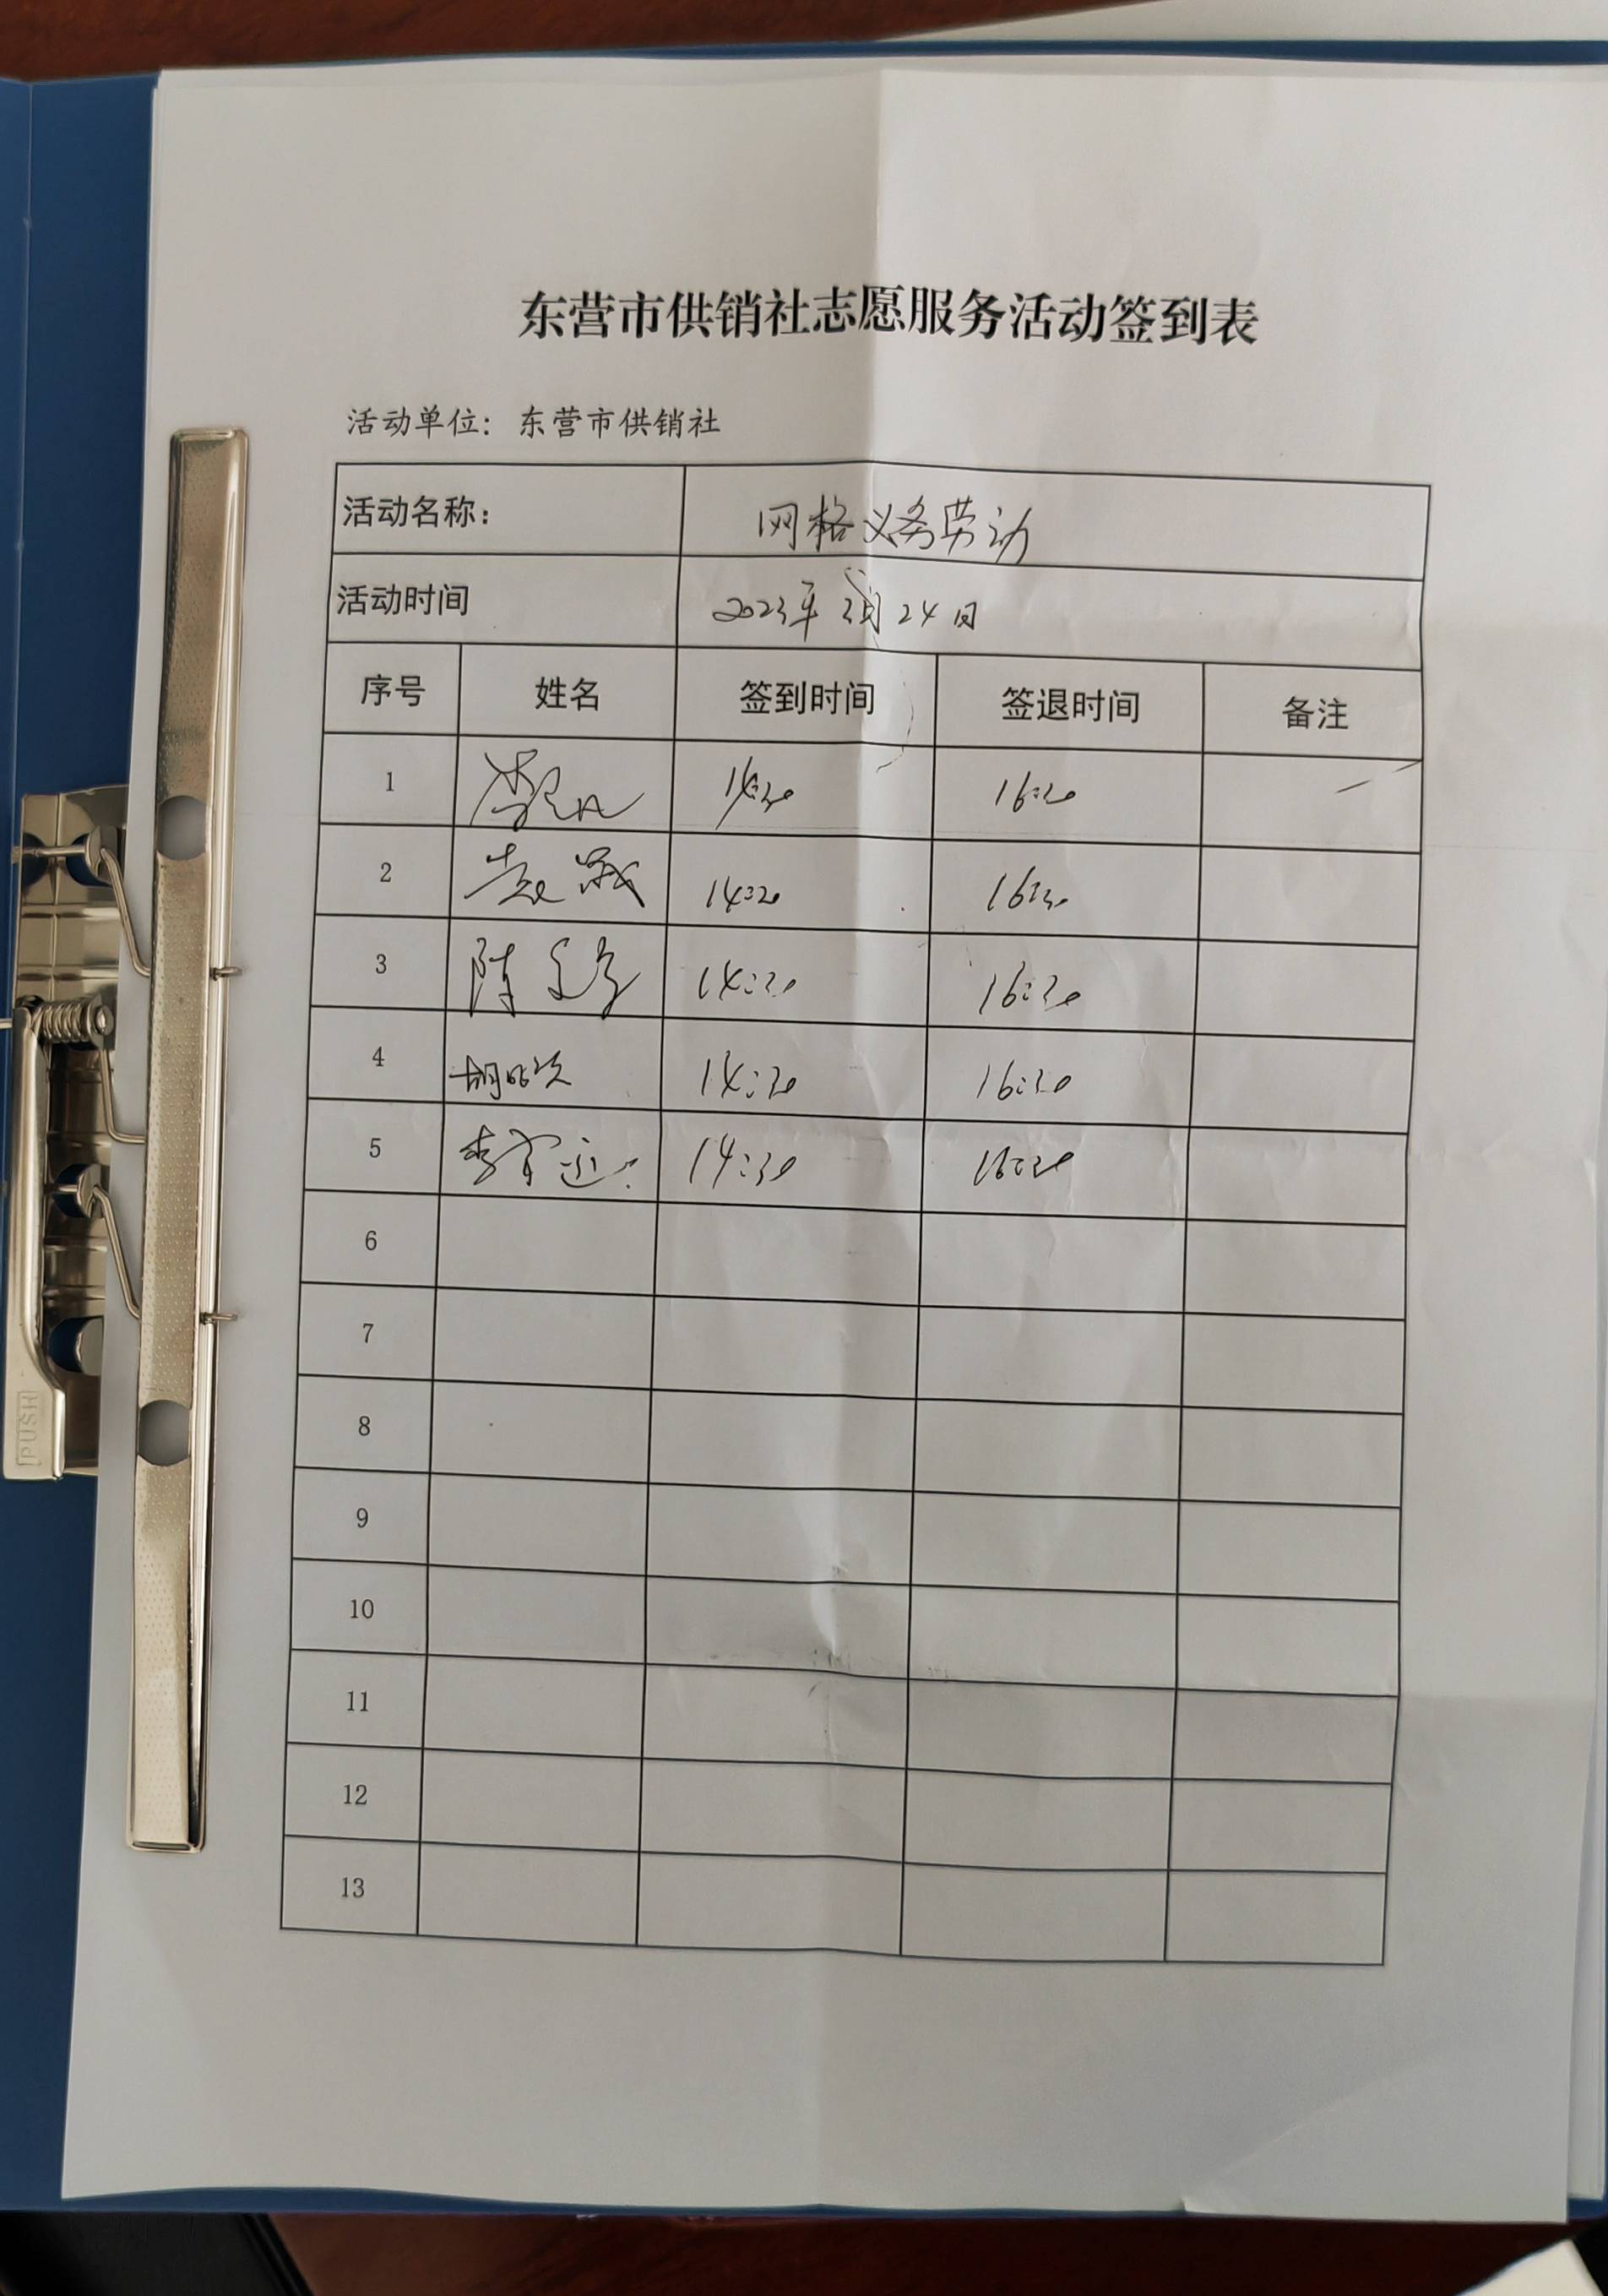 东营市供销社志愿服务活动签到表
活动单位：东营市供销社
活动名称： 网格义务劳动
活动时间 2023年3月24日
序号 姓名 签到时间 签退时间 备注
1 14:30 16:30
2 14:30 16:30
3 陈 14:30 16:30
4 胡 14:30 16:30
5 李 14:30 16:30
6
7
8
9
10
11
12
13
PUSH